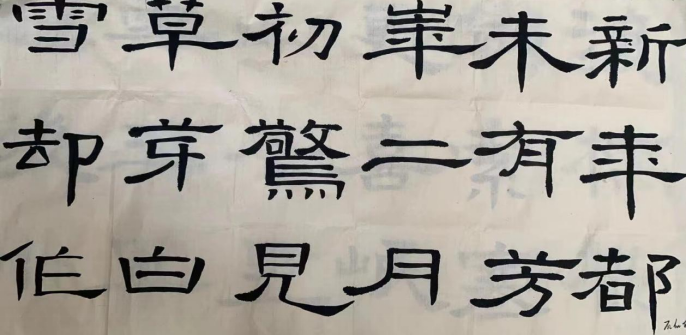 新年都
未有芳
崋二月
初驚見
草芽白
雪却